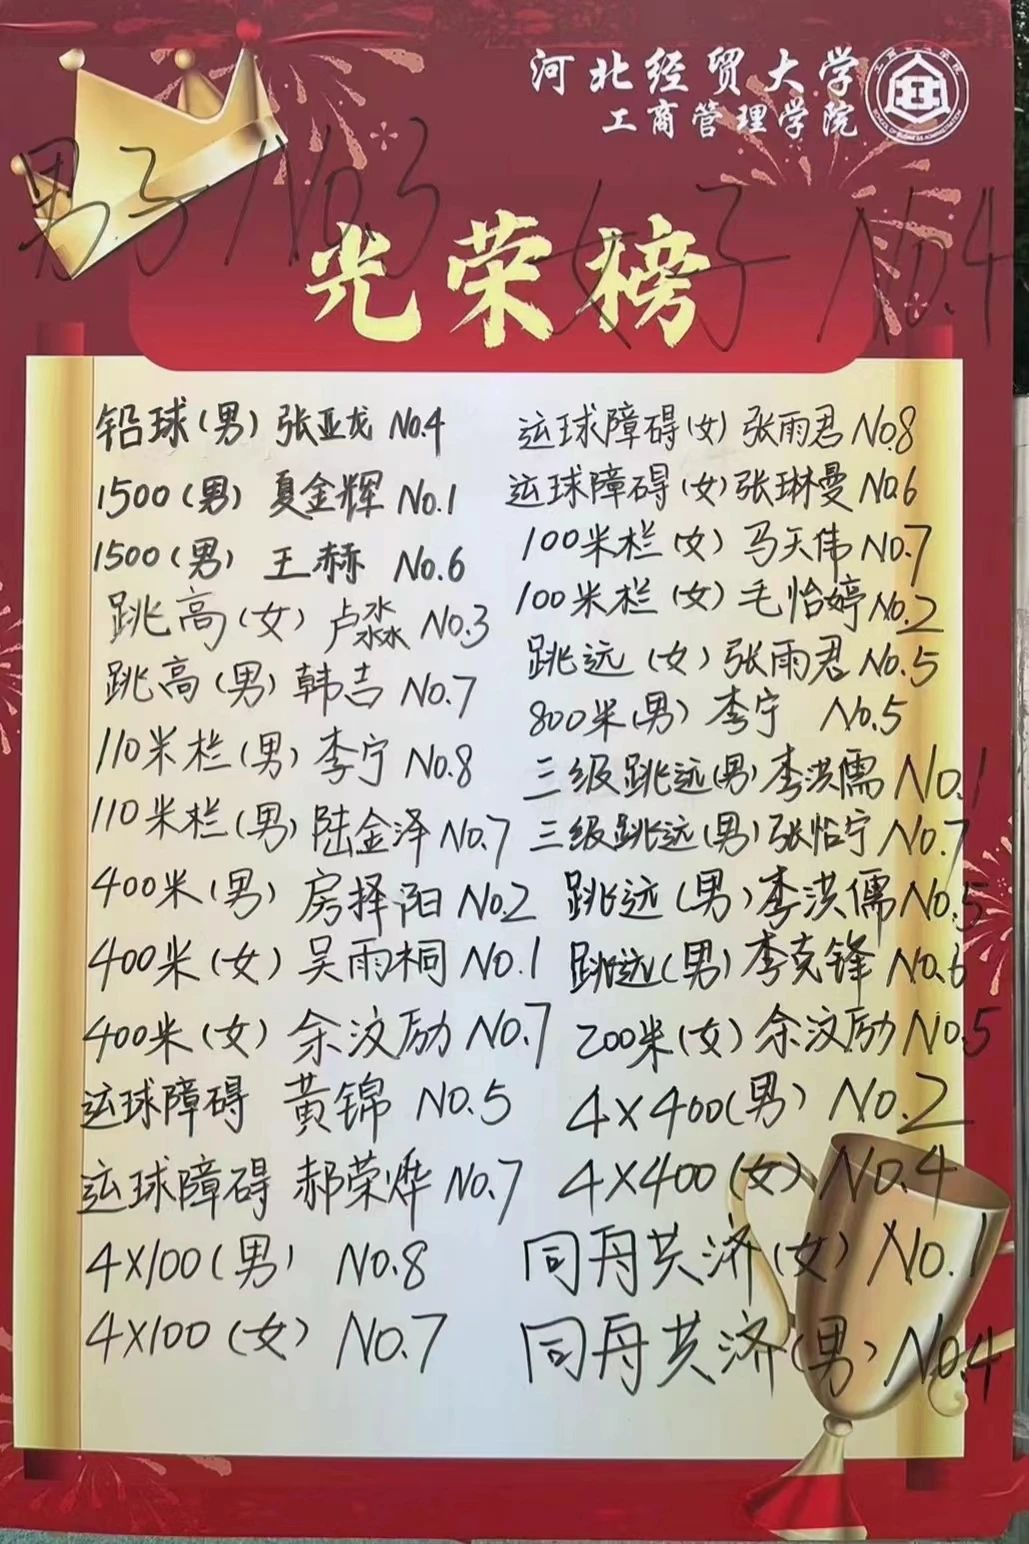 河北经贸大学
工商管理学院
男子 No.3 女子 No.4
光荣榜
铅球(男) 张亚龙 No.4
1500(男) 夏金辉 No.1
1500(男) 王赫 No.6
跳高(女) 卢淼淼 No.3
跳高(男) 韩吉 No.7
110米栏(男) 李宁 No.8
110米栏(男) 陆金泽 No.7
400米(男) 房择阳 No.2
400米(女) 吴雨桐 No.1
400米(女) 余汶励 No.7
运球障碍 黄锦 No.5
运球障碍 郝荣烨 No.7
4×100(男) No.8
4×100(女) No.7
运球障碍(女) 张雨君 No.8
运球障碍(女) 张琳曼 No.6
100米栏(女) 马天伟 No.7
100米栏(女) 毛怡婷 No.2
跳远(女) 张雨君 No.5
800米(男) 李宁 No.5
三级跳远(男) 李洪儒 No.1
三级跳远(男) 张怡宁 No.7
跳远(男) 李洪儒 No.5
跳远(男) 李克锋 No.6
200米(女) 余汶励 No.5
4×400(男) No.2
4×400(女) No.4
同舟共济(女) No.1
同舟共济(男) No.4